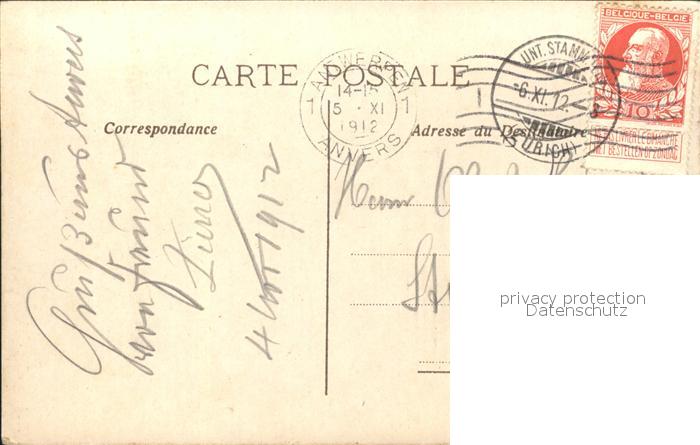 BELGIQUE-BELGIË
10
NE PAS LIVRER LE DIMANCHE
NIET BESTELLEN OP ZONDAG
UNT. STAMMHEIM
-6.XI.12.-8
(ZÜRICH)
1 ANTWERPEN 1
14-15
5 · XI
1912
ANVERS
CARTE POSTALE
Correspondance
Adresse du Destinataire
Gruß aus Anvers
von Freund
4 Nov 1912
Herrn
privacy protection
Datenschutz